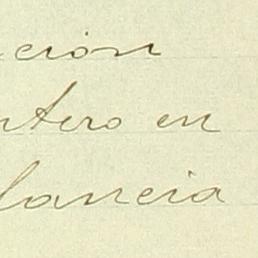 ción
ntero en
lancia